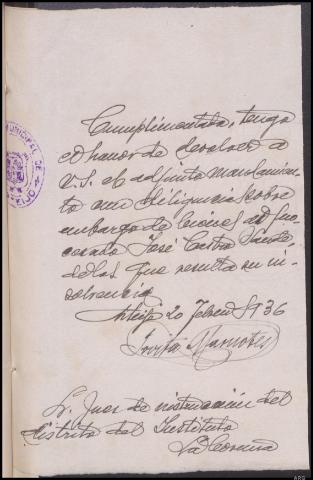 Cumplimentada, tengo
el honor de devolver a
V. S. el adjunto mandamien-
to con diligencia sobre
embargo de bienes del pro-
cesado José Castro
de las que resulta su in-
solvencia
20 Febrero 1936
Sr. Juez de instrucción del
distrito del Instituto
La Coruña
MUNICIPAL DE